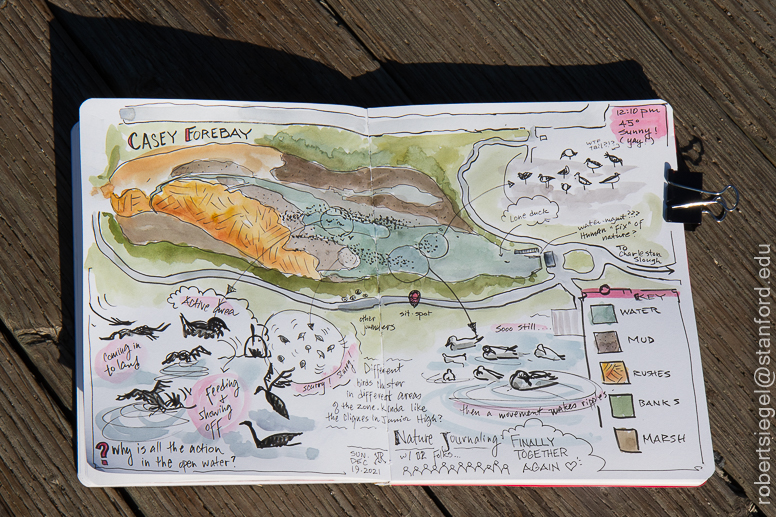 CASEY FOREBAY
12:10 pm
45°
Sunny!
(yay!)
WTF
tail?!?
Lone duck
Human "fix" of
nature?
To
Charleston
Slough
Active area
other
journalers
sit spot
Sooo still...
Coming in
to land
Feeding
& showing
off
Different
birds cluster
in different areas
of the zone. Kinda like
the cliques in Junior High?
then a movement makes ripples
KEY
WATER
MUD
RUSHES
BANKS
MARSH
? Why is all the action
in the open water?
SUN.
DEC
19.2021
Nature Journaling
w/ folks...
FINALLY
TOGETHER
AGAIN
robertsiegel@stanford.edu